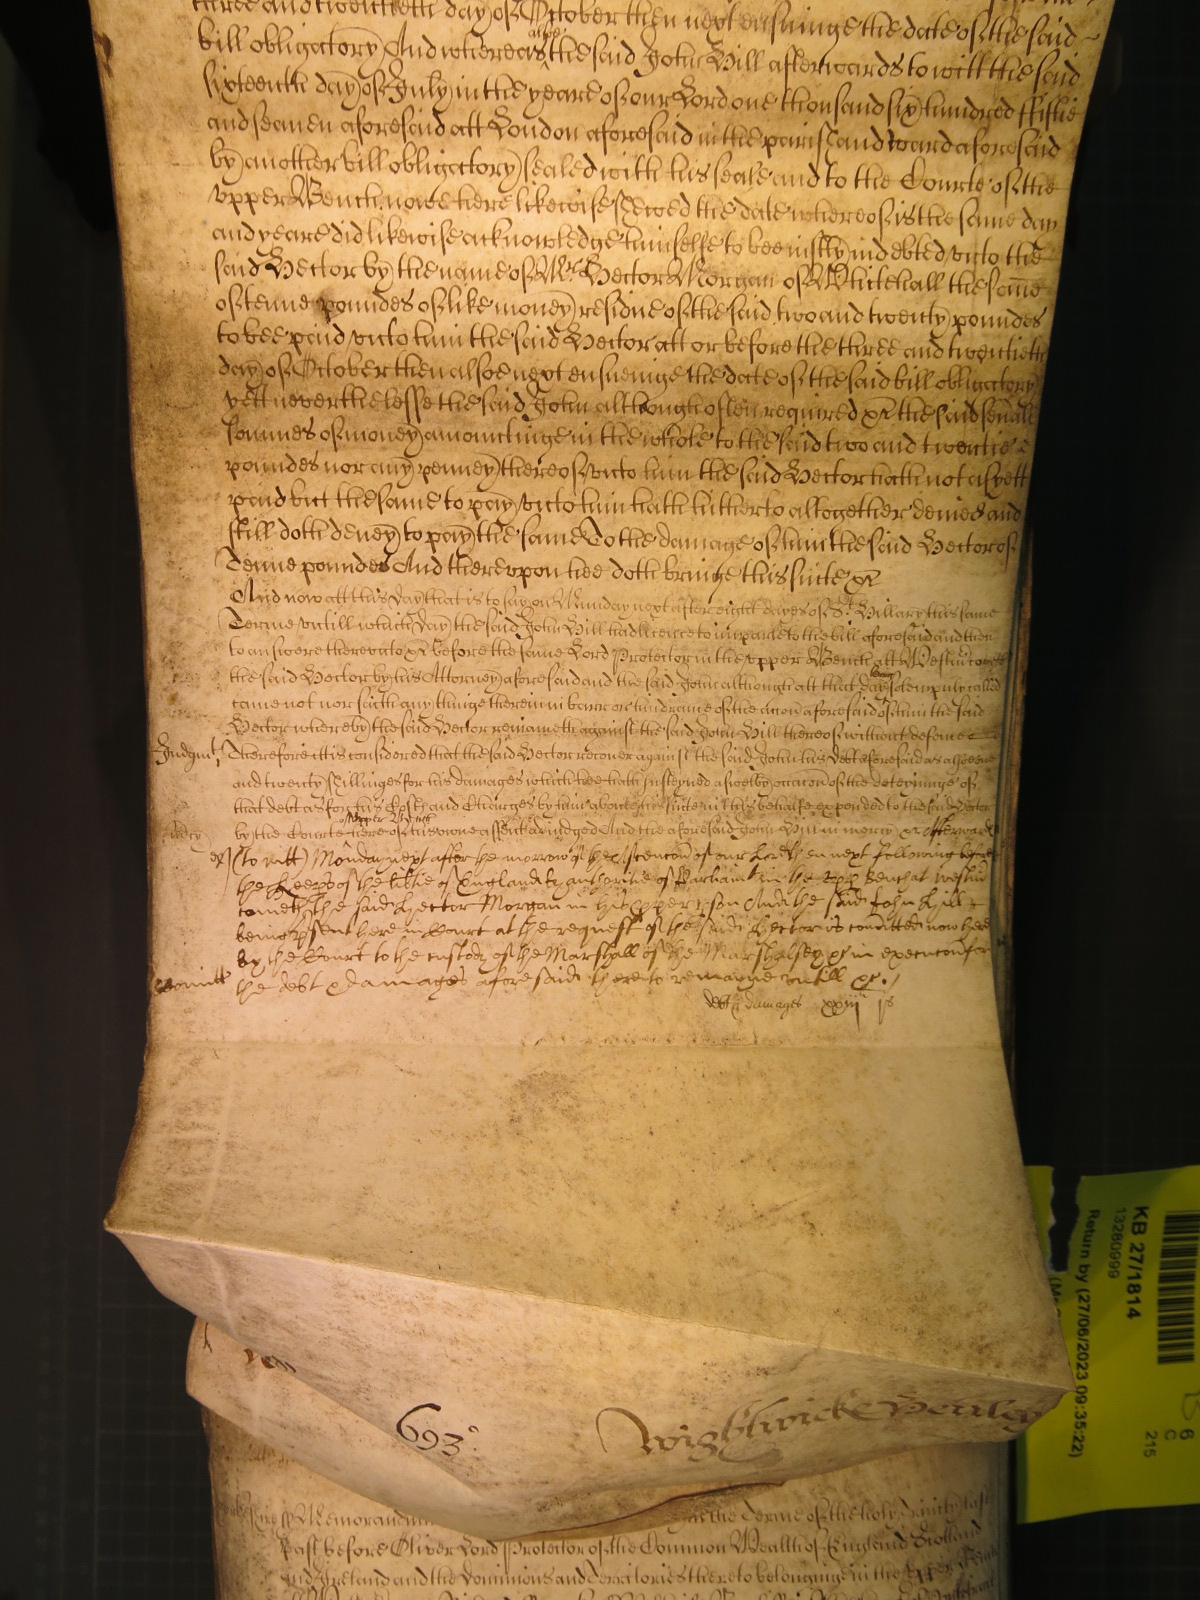 three and twentieth day of October then next ensuinge the date of the said
bill obligatory And whereas alsoe the said John Hill afterwards to witt the said
sixteenth day of July in the yeare of our Lord one thousand six hundred ffiftie
and seaven aforesaid att London aforesaid in the parish and ward aforesaid
by another bill obligatory sealed with his seale and to the Courte of the
vpper Bench nowe here likewise shewed the date whereof is the same day
and yeare did likewise acknowledge himselfe to bee iustly indebted vnto the
said Hector by the name of Mr Hector Morgan of Whitehall the som̄e
of tenne poundes of like money residue of the said two and twenty poundes
to bee paid vnto him the said Hector att or before the three and twentieth
day of October then alsoe next ensueinge the date of the said bill obligatory
yett neverthelesse the said John although often required &c the said seuall
sommes of money amountinge in the whole to the said two and twentie
poundes nor any penney thereof vnto him the said Hector hath not as yett
paid but the same to pay vnto him hath hitherto altogether denied and
still doth deney to pay the same To the damage of him the said Hector of
Tenne poundes And therevpon hee doth bringe this suite &c
And now att this day that is to say on Munday next after eight dayes of St Hillary this same
Terme vntill which day the said John Hill had licence to imparle to the bill aforesaid and then
to answere therevnto &c before the same Lord Protector in the vpper Bench att Westmr cometh
the said Hector by his Attorney aforesaid and the said John although att that day being solempnly called
came not nor saith any thinge therein in barre or hindrance of the accon aforesaid of him the said
Hector whereby the said Hector remaineth against the said John Hill thereof without defence
Judgmt Therefore itt is considered that the said Hector recover against the said John his debt aforesaid as alsoe
and twenty shillinges for his damages which hee hath susteyned aswell by occacon of the deteininge of
that debt as for his Costs and Charges by him about his suite in this behalfe expended to the said Hector
by the Courte of vpper Bench here of his owne assent adiudged And the aforesaid John Hill in mercy &c Afterward
mercy
(to witt) Monday next after the morrow of the Ascencon of our Lord then next following before
the Keeps of the Libtie of England by authoritie of Parliamt in the Vpp Bench at Westmr
cometh the said Hector Morgan in his pper pson And the said John Hill
being psent here in Court at the request of the said Hector is comitted now here
by the Court to the custody of the Marshall of the Marshalsey &c in execucon for
comitt the debt & damages aforesaid there to remayne vntill &c
debt & damages xxiij li js
693
Wightwicke Henley
Memorandum the Terme of the holy Trinity last
Past before Oliver Lord Protector of the Common Wealth of England Scotland
and Ireland and the Dominions and Territories thereto belonginge in the vpper Bench
KB 27/1814
13280999
Return by (27/06/2023 09:35:22)
6
C
215